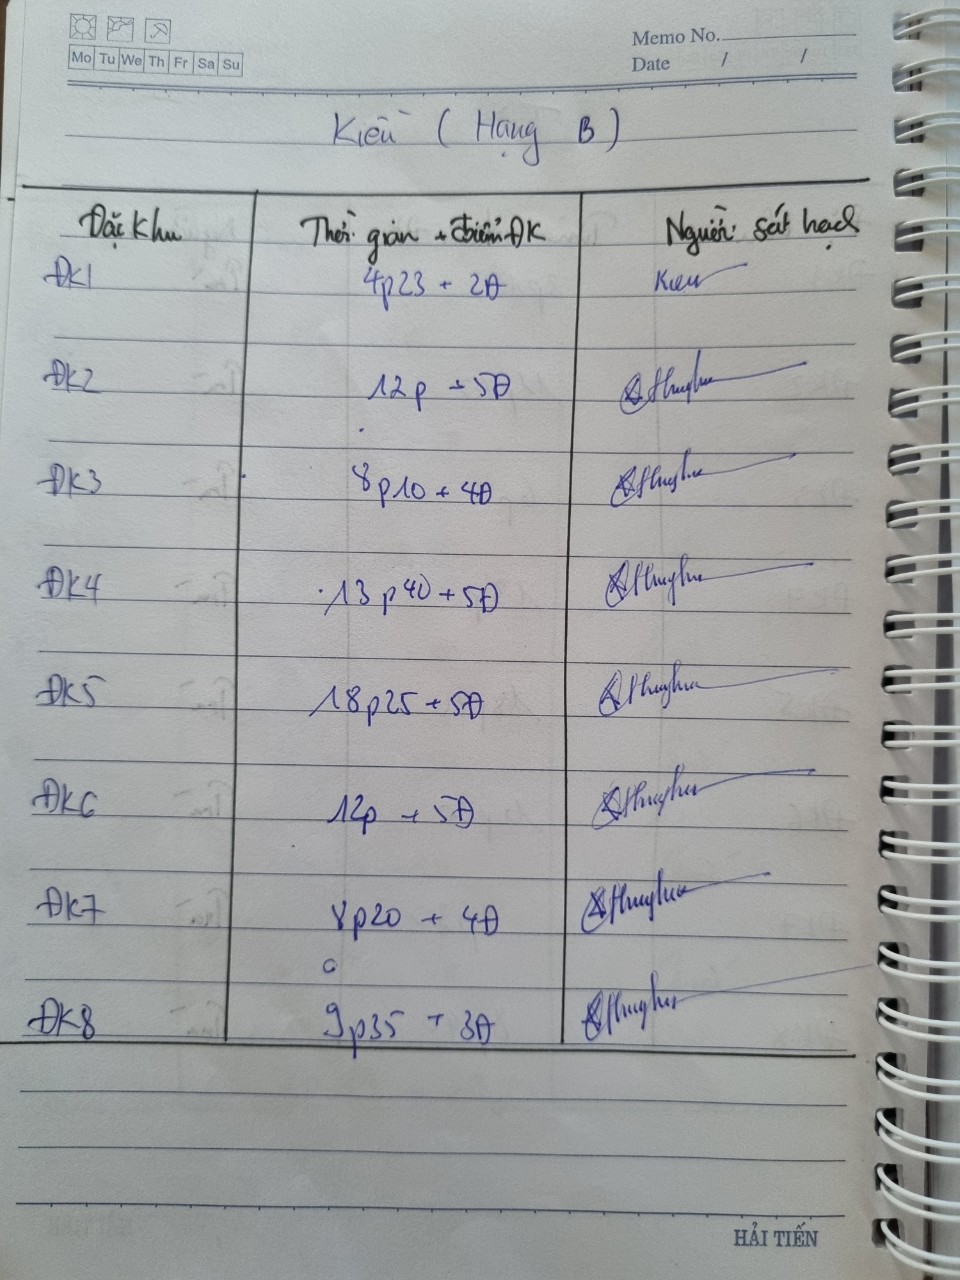 Memo No.
Mo Tu We Th Fr Sa Su
Date / /
Kiều (Hạng B)
Đặc khu Thời gian + điểm ĐK Người sát hạch
ĐK1 4p23 + 2Đ Kiều
ĐK2 12p + 5Đ
ĐK3 8p10 + 4Đ
ĐK4 13p40 + 5Đ
ĐK5 18p25 + 5Đ
ĐK6 12p + 5Đ
ĐK7 8p20 + 4Đ
ĐK8 9p35 + 3Đ
HẢI TIẾN